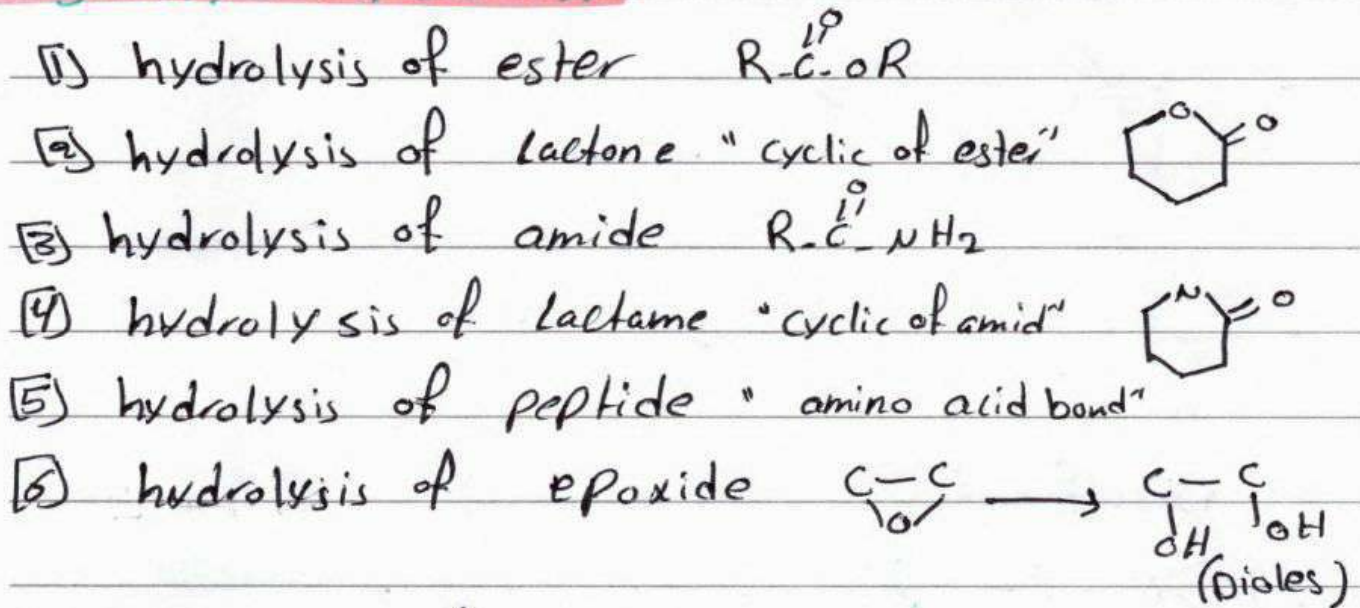 [1] hydrolysis of ester R-C-OR O
[2] hydrolysis of Lactone "cyclic of ester" O O
[3] hydrolysis of amide R-C-NH2 O
[4] hydrolysis of Lactame "cyclic of amid" N O
[5] hydrolysis of peptide "amino acid bond"
[6] hydrolysis of epoxide C-C O → C-C OH OH
(Dioles)